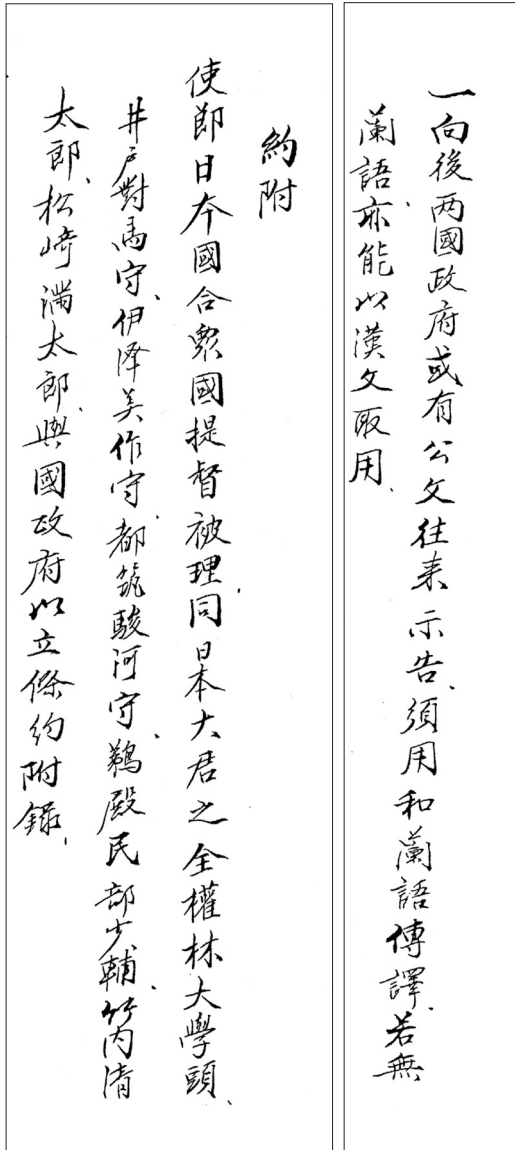 一向後两國政府或有公文往来示告、須用和蘭語傳譯、若無
蘭語、亦能以漢文取用、
約附
使即日夲國合衆國提督被理、同日本大君之全權林大學頭、
井戸對馬守、伊泽美作守、都筑駿河守、鵜殿民部少輔、竹内清
太郎、松﨑満太郎、與國政府以立條約附錄、